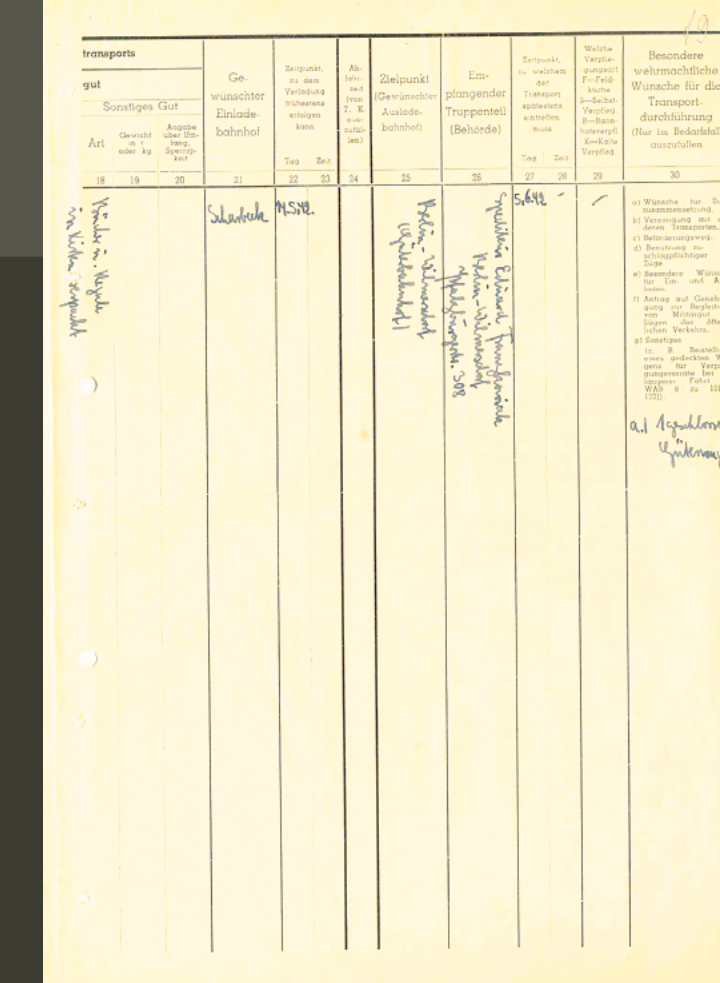 19
transports
gut
Sonstiges Gut
Art
Gewicht
in t
oder kg
Angabe
über Um-
fang,
Sperrig-
keit
Ge-
wünschter
Einlade-
bahnhof
Zeitpunkt,
zu dem
Verladung
frühestens
erfolgen
kann
Tag Zeit
Ab-
fahrt-
zeit
(von
T. K.
aus-
zufül-
len)
Zielpunkt
(Gewünschter
Auslade-
bahnhof)
Em-
pfangender
Truppenteil
(Behörde)
Zeitpunkt,
zu welchem
der
Transport
spätestens
eintreffen
muss
Tag Zeit
Welche
Verpfle-
gungsart
F=Feld-
küche
S=Selbst-
Verpfleg.
B=Bahn-
hofsverpfl
K=Kalte
Verpfleg.
Besondere
wehrmachtliche
Wünsche für die
Transport-
durchführung
(Nur im Bedarfsfall
auszufüllen
18 19 20 21 22 23 24 25 26 27 28 29 30
Bücher u. Regale
in Kisten verpackt
Schaerbeek
Berlin-Wilmersdorf
(Güterbahnhof)
Spedition Eduard
Berlin-Wilmersdorf
Pfalzburgerstr. 308
5.6.42 -
/
a) Wünsche für
zusammensetzung.
b) Vereinigung mit
deren Transporten.
c) Beförderungsweg.
d) Benutzung zu-
schlagpflichtiger
Züge.
e) Besondere
für Ein- und
laden.
f) Antrag auf
gung zur
von Militärgut
Zügen des
lichen Verkehrs.
g) Sonstiges
(z. B.
eines gedeckten
gens für
gungsvorräte bei
längerer Fahrt
WAB § zu
a.) 1